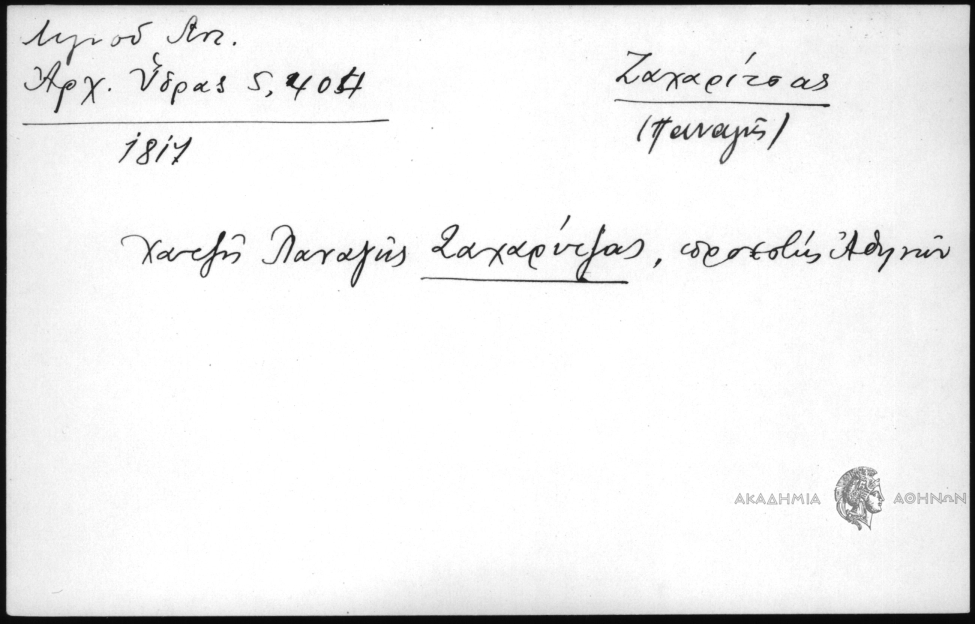 Λιγνοῦ Ἀντ.
Ἀρχ. Ὕδρας 5, 404
1817
Ζαχαρίτσας
(Παναγῆς)
Χατζῆ Παναγῆς Ζαχαρίτζας, προεστὼς Ἀθηνῶν
ΑΚΑΔΗΜΙΑ ΑΘΗΝΩΝ